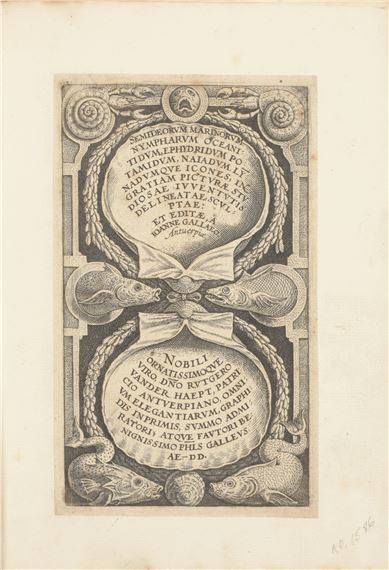 SEMIDEORVM MARINORVM
NYMPHARVM OCEANI
TIDVM, EPHYDRIDVM PO
TAMIDVM, NAIADVM, LI
NADVMQVE ICONES, IN
GRATIAM PICTVRÆ STV
DIOSAE IVVENTVTIS
DELINEATAE, SCVL
PTAE:
ET EDITÆ, A
IOANNE GALLAEO
Antuerpiæ
NOBILI
ORNATISSIMOQVE
VIRO, DÑO RVTGERO
VANDER HAEPT, PATRI
CIO ANTVERPIANO, OMNI
VM ELEGANTIARVM, GRAPHI
DIS INPRIMIS, SVMMO ADMI
RATORI, ATQVE FAVTORI BE
NIGNISSIMO PHLS GALLEVS
AE—DD.